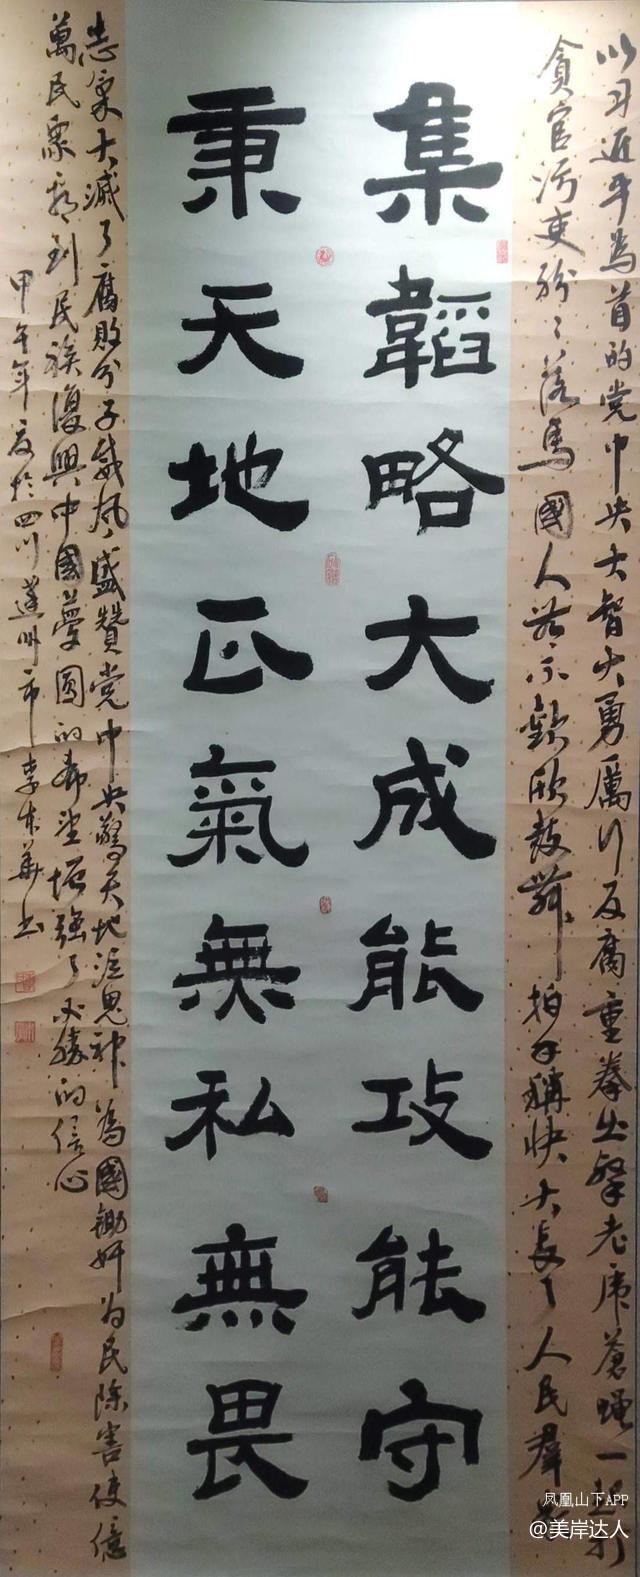 集韜略大成能攻能守
秉天地正氣無私無畏
以习近平為首的党中央大智大勇厲行反腐重拳出擊老虎蒼蝇一起打
貪官污吏紛々落馬國人無不歡欣鼓舞拍手稱快大長了人民群众
志氣大滅了腐敗分子威风盛贊党中央驚天地泣鬼神為國鋤奸为民除害使億
萬民眾看到民族復興中國夢圆的希望增强了必勝的信心
甲午年夏於四川達州市李東華书
凤凰山下APP
@美岸达人